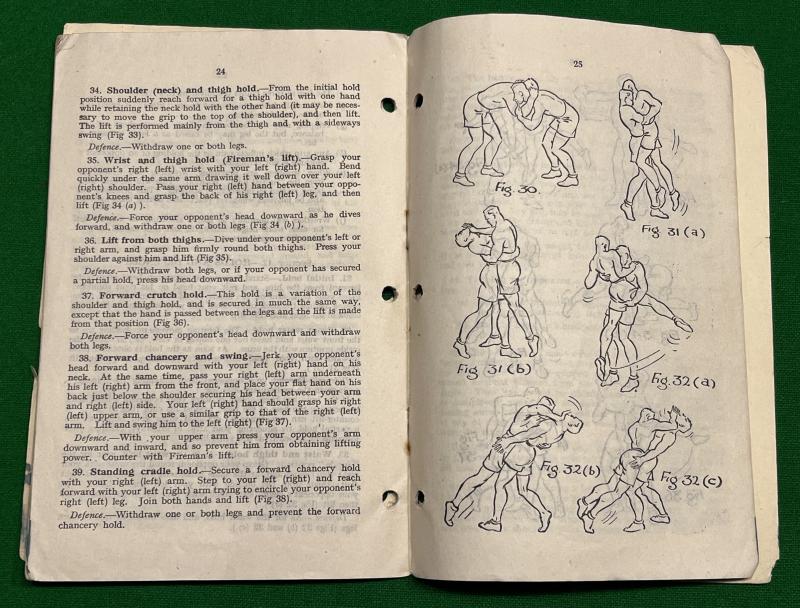 24
34. Shoulder (neck) and thigh hold.—From the initial hold
position suddenly reach forward for a thigh hold with one hand
while retaining the neck hold with the other hand (it may be neces-
sary to move the grip to the top of the shoulder), and then lift.
The lift is performed mainly from the thigh and with a sideways
swing (Fig 33).
Defence.—Withdraw one or both legs.
35. Wrist and thigh hold (Fireman's lift).—Grasp your
opponent's right (left) wrist with your left (right) hand. Bend
quickly under the same arm drawing it well down over your left
(right) shoulder. Pass your right (left) hand between your oppo-
nent's knees and grasp the back of his right (left) leg, and then
lift (Fig 34 (a) ).
Defence.—Force your opponent's head downward as he dives
forward, and withdraw one or both legs (Fig 34 (b) ).
36. Lift from both thighs.—Dive under your opponent's left or
right arm, and grasp him firmly round both thighs. Press your
shoulder against him and lift (Fig 35).
Defence.—Withdraw both legs, or if your opponent has secured
a partial hold, press his head downward.
37. Forward crutch hold.—This hold is a variation of the
shoulder and thigh hold, and is secured in much the same way,
except that the hand is passed between the legs and the lift is made
from that position (Fig 36).
Defence.—Force your opponent's head downward and withdraw
both legs.
38. Forward chancery and swing.—Jerk your opponent's
head forward and downward with your left (right) hand on his
neck. At the same time, pass your right (left) arm underneath
his left (right) arm from the front, and place your flat hand on his
back just below the shoulder securing his head between your arm
and right (left) side. Your left (right) hand should grasp his right
(left) upper arm, or use a similar grip to that of the right (left)
arm. Lift and swing him to the left (right) (Fig 37).
Defence.—With your upper arm press your opponent's arm
downward and inward, and so prevent him from obtaining lifting
power. Counter with Fireman's lift.
39. Standing cradle hold.—Secure a forward chancery hold
with your right (left) arm. Step to your left (right) and reach
forward with your left (right) arm trying to encircle your opponent's
right (left) leg. Join both hands and lift (Fig 38).
Defence.—Withdraw one or both legs and prevent the forward
chancery hold.
25
Fig. 30.
Fig. 31 (a)
Fig. 31 (b)
Fig. 32 (a)
Fig 32 (b)
Fig 32 (c)